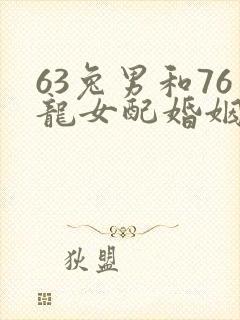 63兔男和76
龍女配婚姻
狄盟